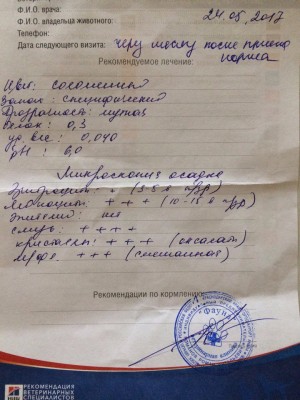 Ф.И.О. врача:
Ф.И.О. владельца животного:
24.05.2017
Телефон:
Дата следующего визита: через месяц после приема
корма
Рекомендуемое лечение:
Цвет: соломенный
Запах: специфический
Прозрачность: мутная
Белок: 0,3
уд. вес: 1,040
pH: 6,0
Микроскопия осадка
Эритроциты: + (3-5 в п/зр)
Лейкоциты: + + + (10-15 в п/зр)
Эпителий: нет
слизь: + + + +
кристаллы: + + + (оксалаты)
М/фл: +++ (смешанная)
Рекомендации по кормлению:
фауна
РЕКОМЕНДАЦИЯ
ВЕТЕРИНАРНЫХ
СПЕЦИАЛИСТОВ